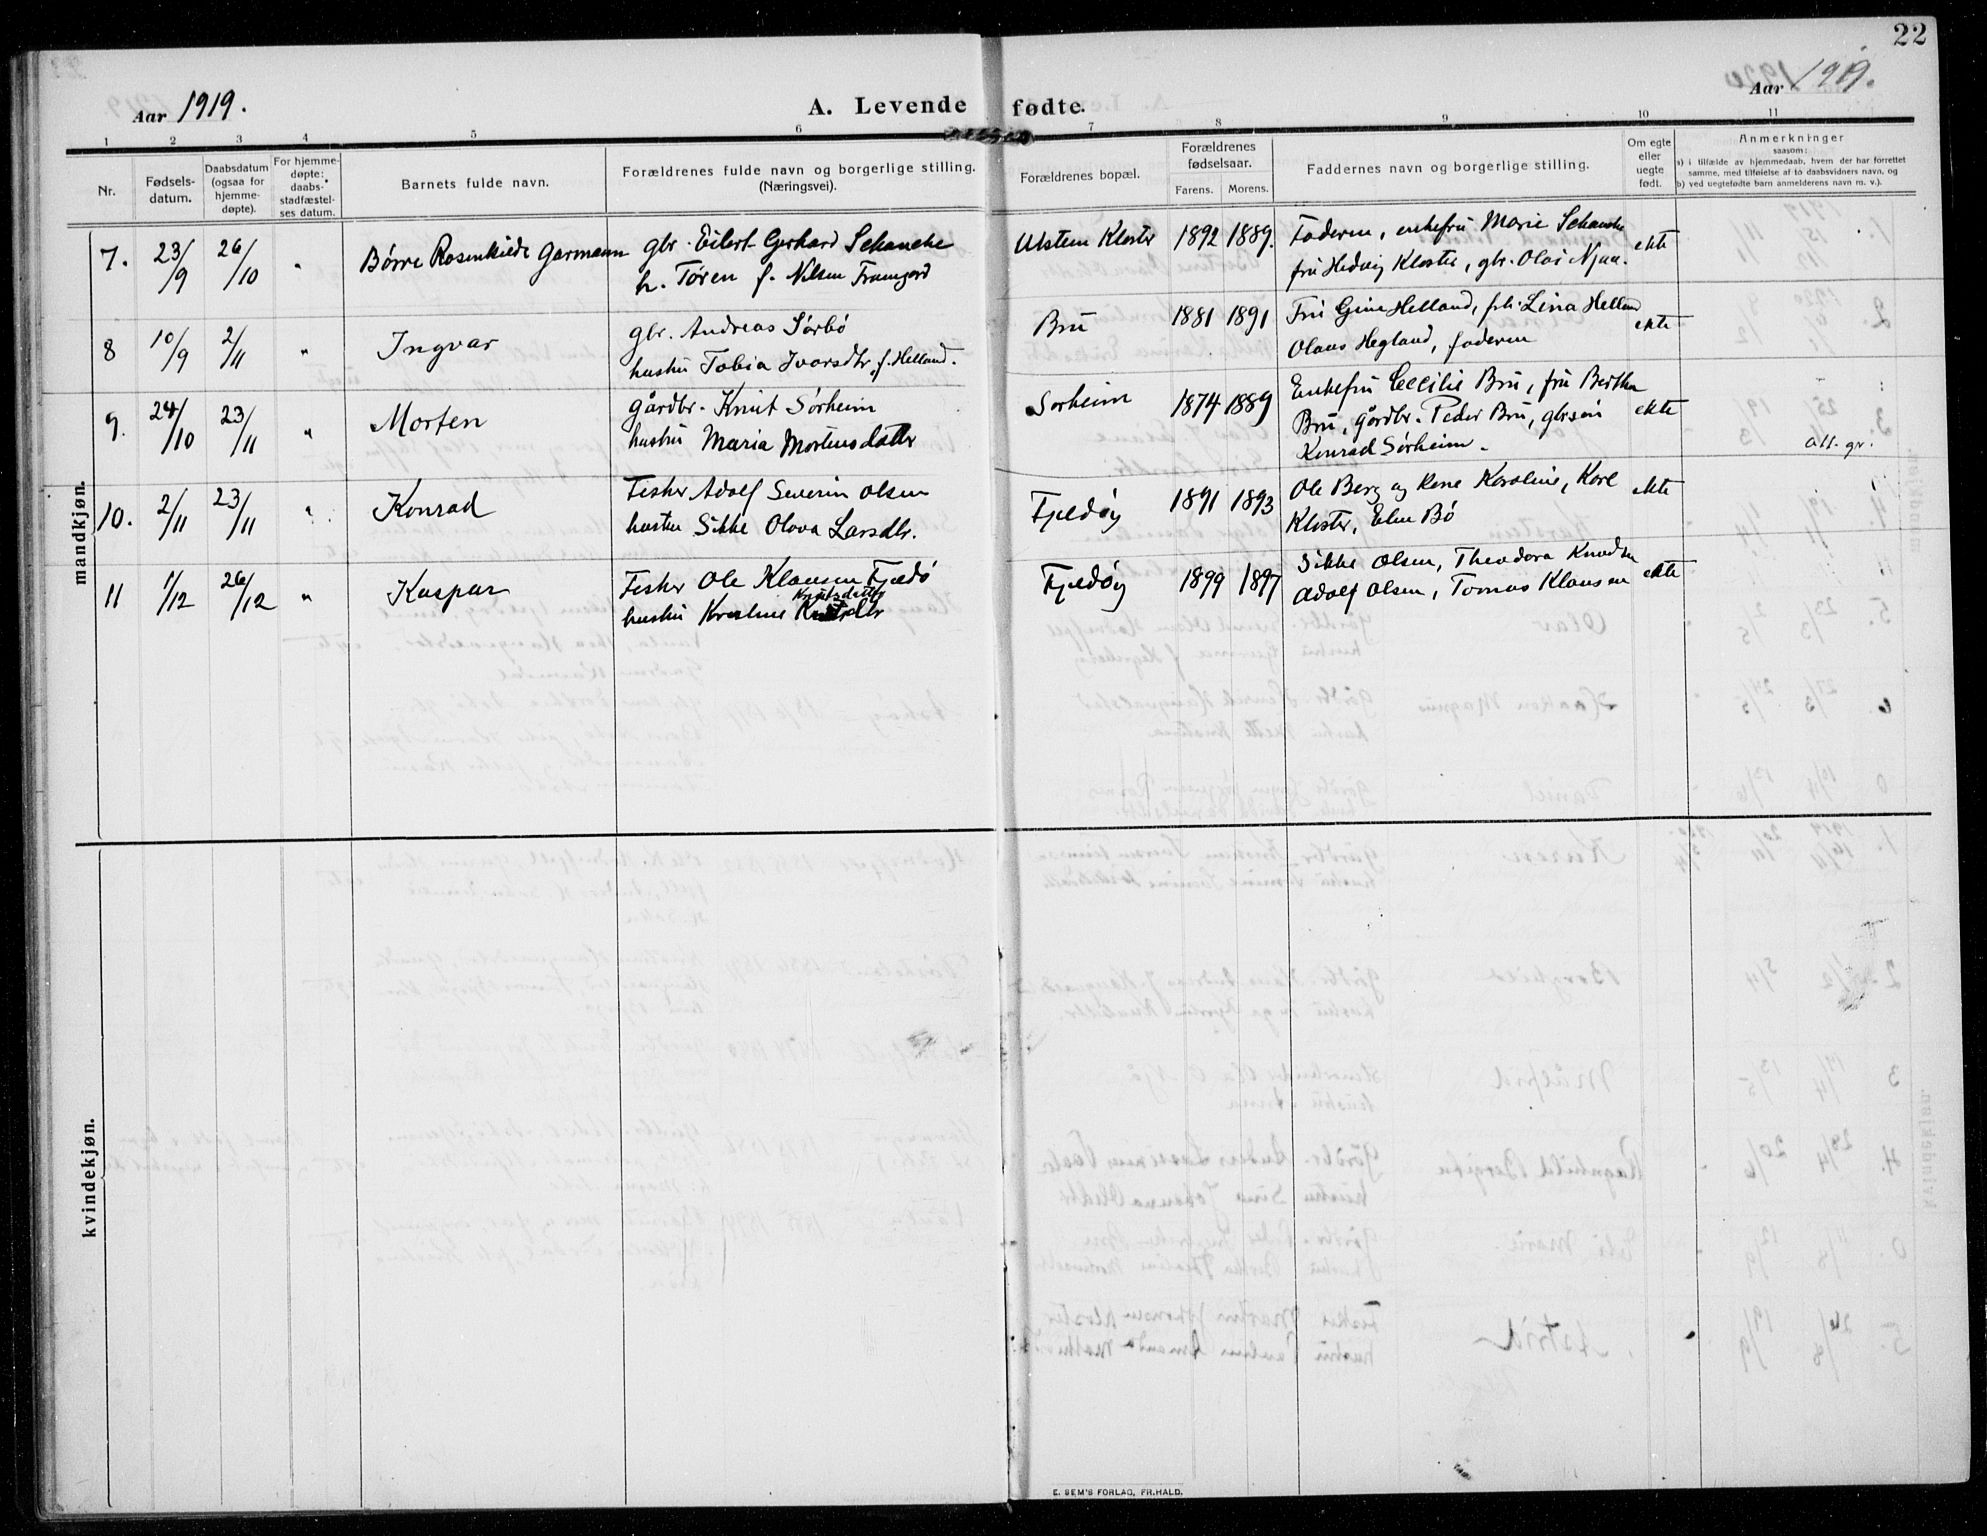 22
Aar 1919.
A. Levende fødte.
Aar 1919.
1 2 3 4 5 6 7 8 9 10 11
Nr.
Fødsels-
datum.
Daabsdatum
(ogsaa for
hjemme-
døpte).
For hjemme-
døpte:
daabs-
stadfæstel-
ses datum.
Barnets fulde navn.
Forældrenes fulde navn og borgerlige stilling.
(Næringsvei).
Forældrenes bopæl.
Forældrenes
fødselsaar.
Farens. Morens.
Faddernes navn og borgerlige stilling.
Om egte
eller
uegte
født.
Anmerkninger
saasom:
a) i tilfælde av hjemmedaab, hvem der har forrettet
samme, med tilføielse af to daabsvidners navn, og
b) ved uegtefødte barn anmelderens navn m. v.).
mandkjøn.
7. 23/9 26/10 " Børre Rosenkilde Garmann
gbr. Eilert Gerhard Schanche
h. Tøren f. Nilsen Tramgard
Utstein Kloster 1892 1889.
Faderen, enkefru Marie Schanche
fru Hedvig Kloster, gbr. Olai Njaa.
ekte
8 10/9 2/11 " Ingvar
gbr. Andreas Sørbø
hustru Tobia Ivarsdtr. f. Helland.
Bru 1881 1891
Fru Gine Helland, frk. Lina Helland
Olaus Hegland, faderen
ekte
9. 24/10 23/11 " Morten
gårdbr. Knut Sørheim
hustru Maria Mortensdatter
Sørheim 1874 1889
Enkefru Cecilie Bru, fru Bertha
Bru, gårdbr. Peder Bru, gbrsøn
Konrad Sørheim.
ekte
att. gr.
10. 2/11 23/11 " Konrad
Fisker Adolf Severin Olsen
hustru Sikke Olava Larsdtr.
Fjeldøy 1891 1893
Ole Berg og Kone Karoline, Karl
Kloster, Elen Bø
ekte
11 1/12 26/12 " Kaspar
Fisker Ole Klausen Fjeldø
Knutsdatter
hustru Kristine
Fjeldøy 1899 1897
Sikke Olsen, Theodora Knudsen
Adolf Olsen, Tomas Klausen
ekte
kvindekjøn.
E. SEM'S FORLAG, FR.HALD.